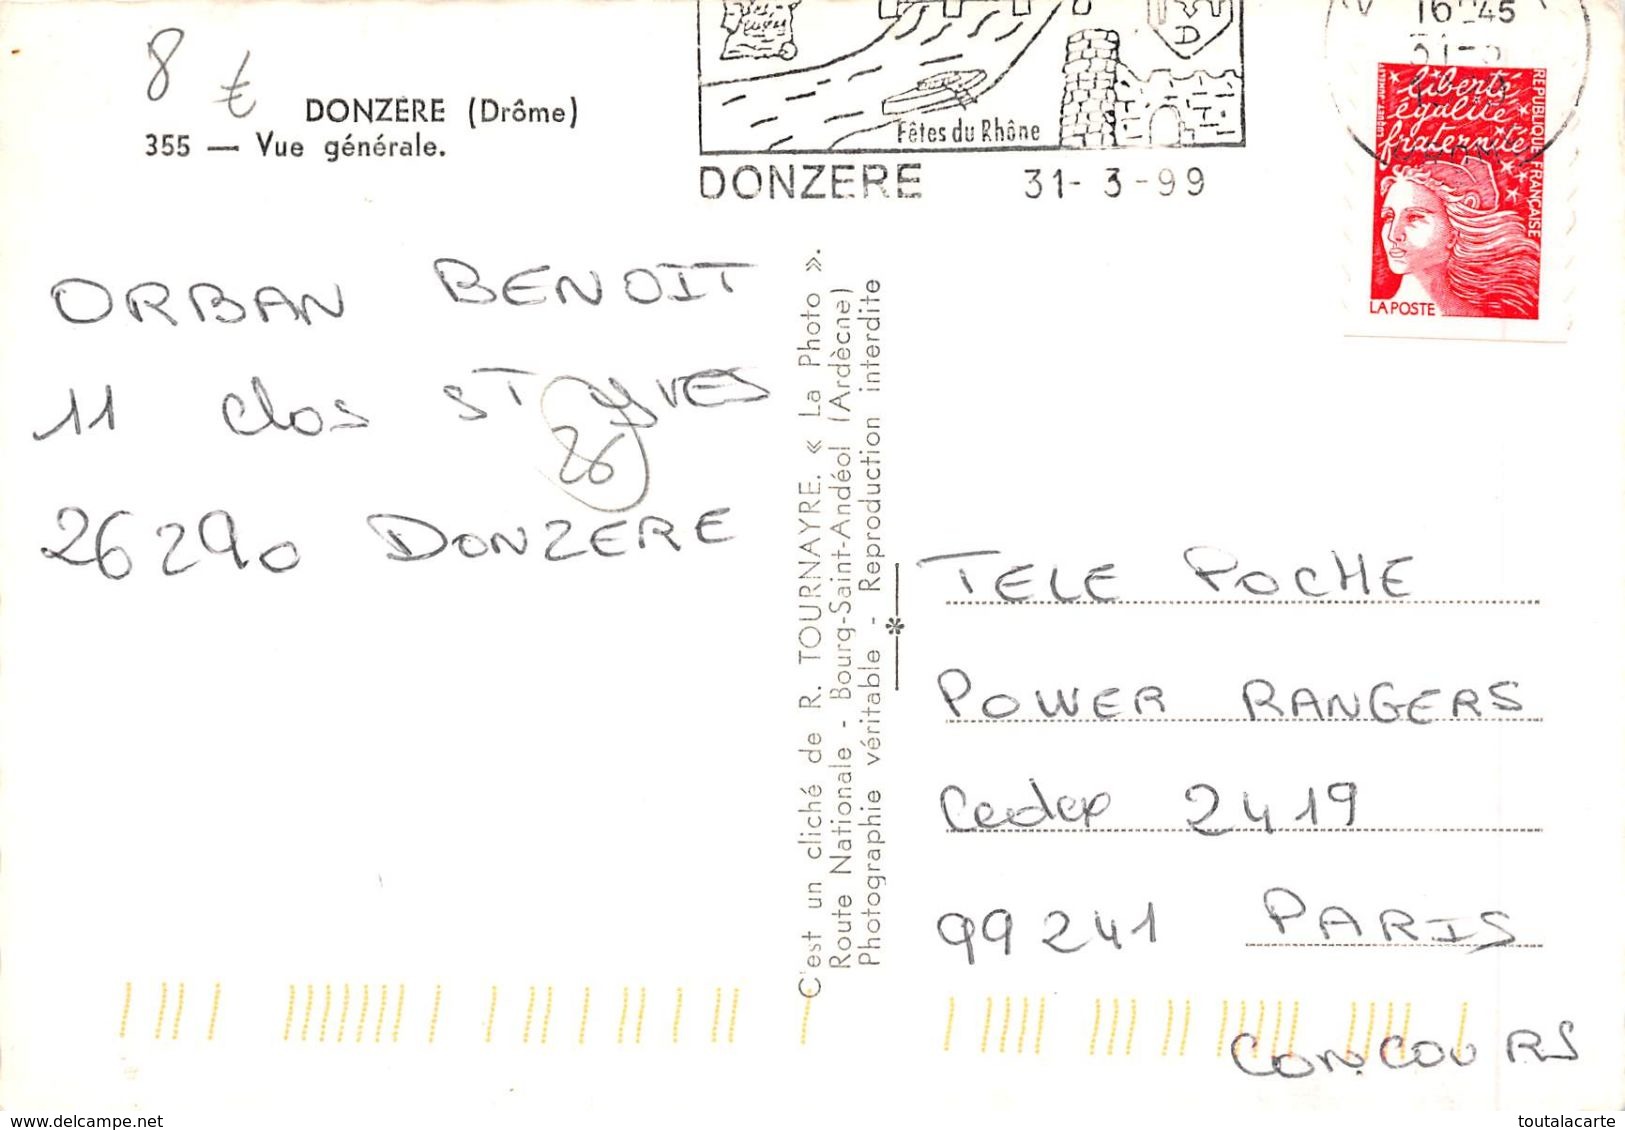 8 €
DONZÈRE (Drôme)
355 — Vue générale.
D
Fêtes du Rhône
DONZERE 31-3-99
16-45
liberté
égalité
fraternité
RÉPUBLIQUE FRANÇAISE
LA POSTE
ORBAN BENOIT
11 clos ST YVES
26
26290 DONZERE
C'est un cliché de R. TOURNAYRE. « La Photo ».
Route Nationale - Bourg-Saint-Andéol (Ardèche)
Photographie véritable - Reproduction interdite
TELE POCHE
POWER RANGERS
Cedex 2419
99241 PARIS
CONCOURS
www.delcampe.net
toutalacarte